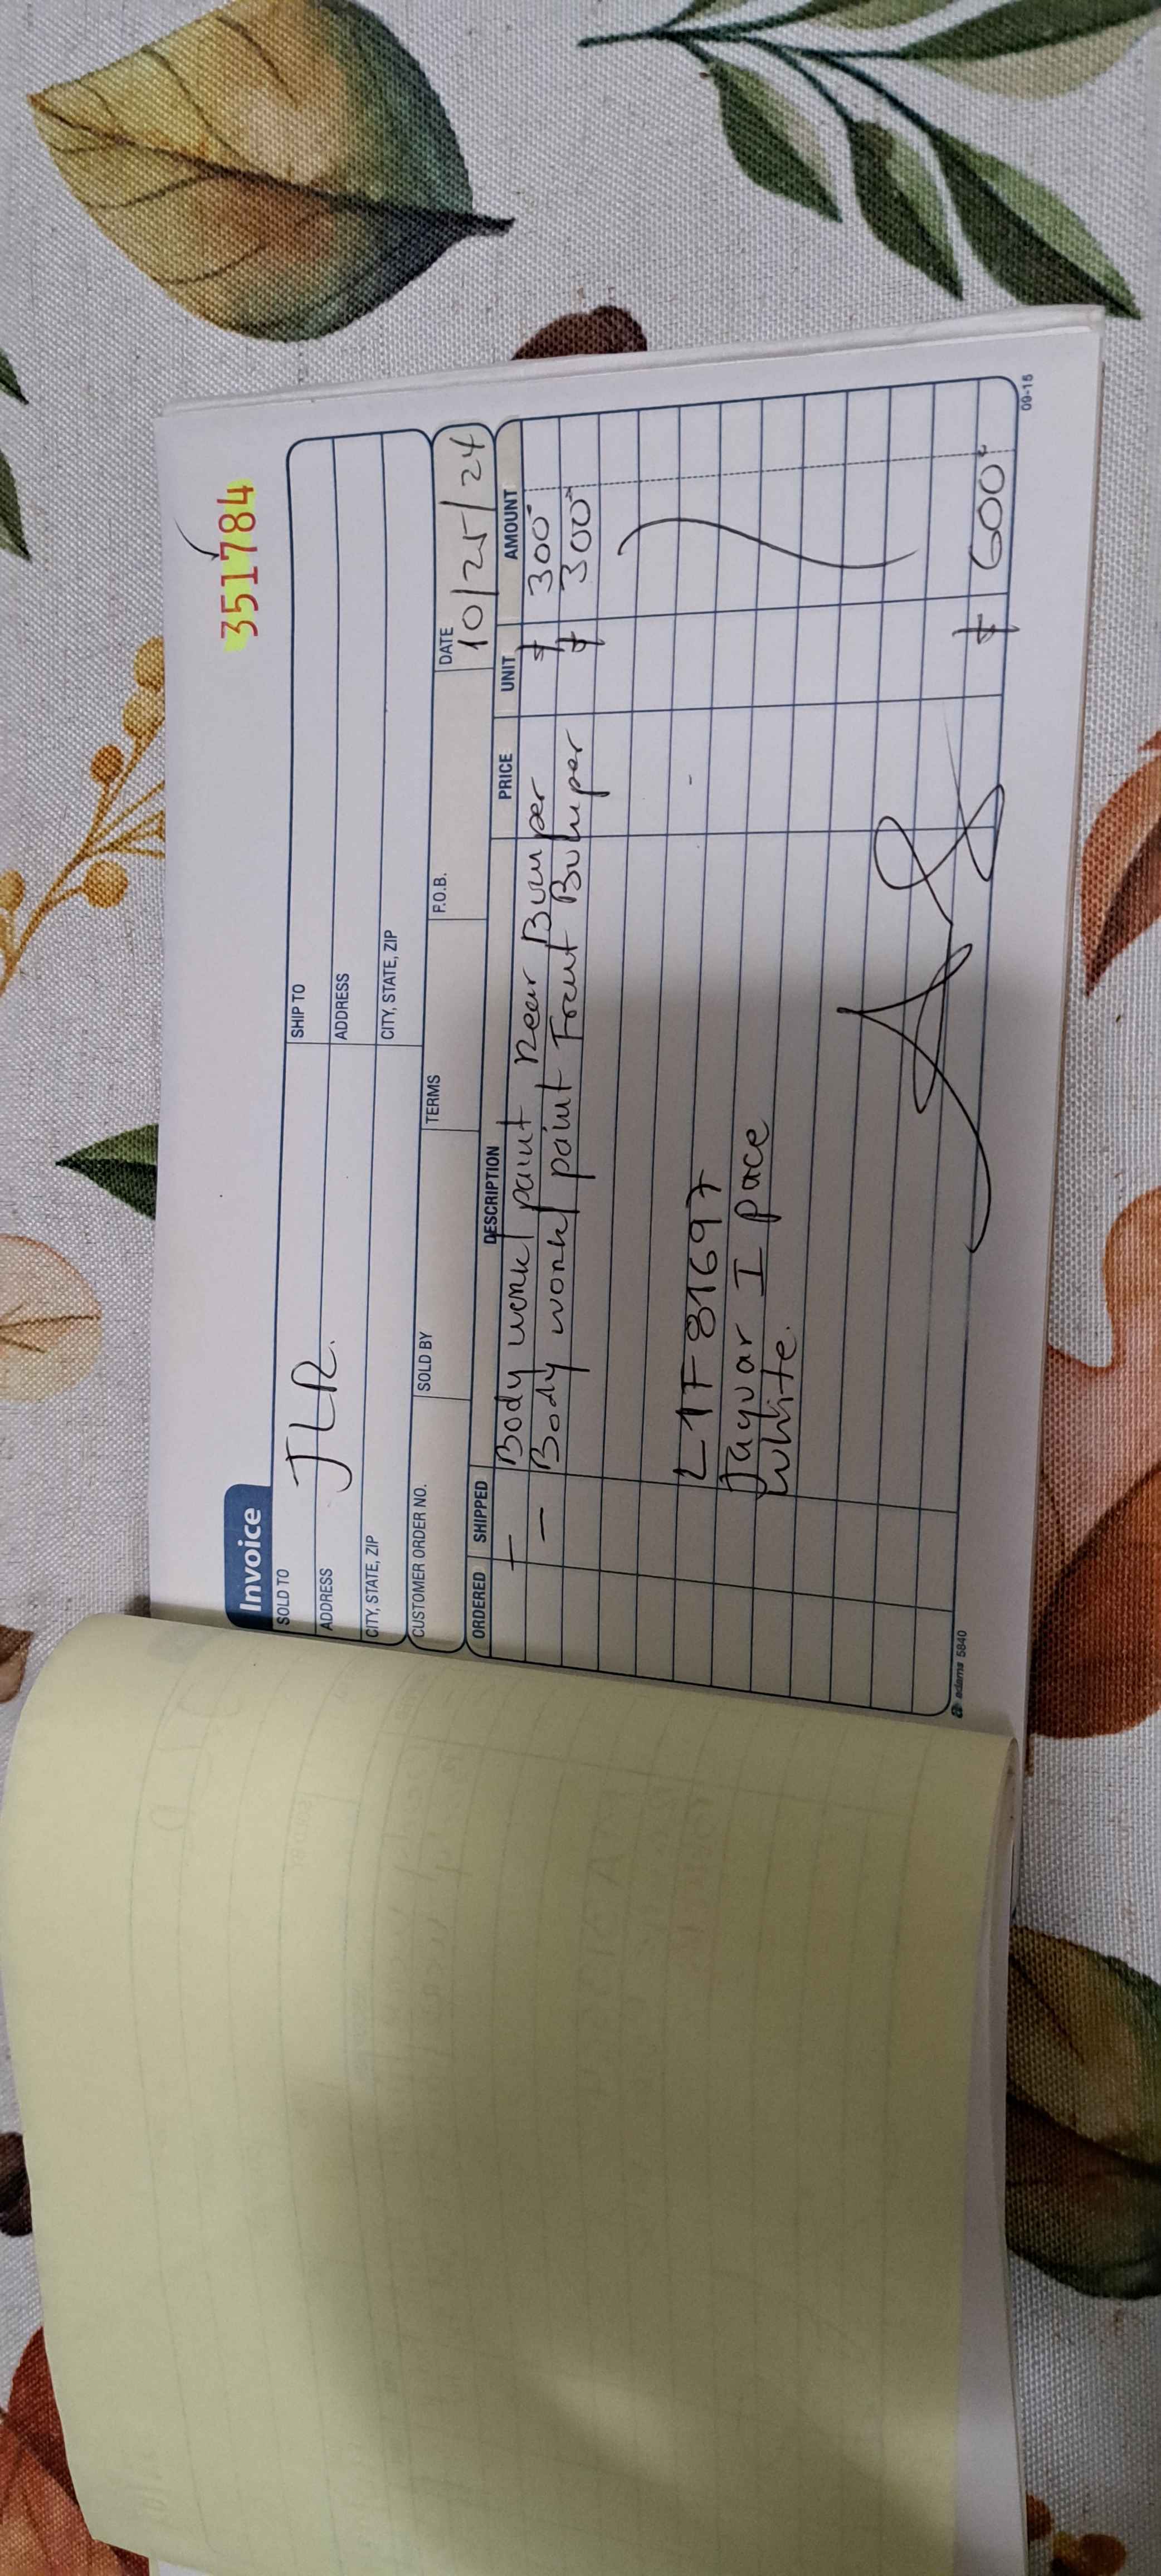 351784
Invoice
SOLD TO JLR. SHIP TO
ADDRESS ADDRESS
CITY, STATE, ZIP CITY, STATE, ZIP
CUSTOMER ORDER NO. SOLD BY TERMS F.O.B. DATE 10/25/24
ORDERED SHIPPED DESCRIPTION PRICE UNIT AMOUNT
- Body work/paint Rear Bumper $ 300
- Body work/paint Front Bumper $ 300
L1F81697
Jaguar I pace
white.
$ 600
adams 5840 09-15